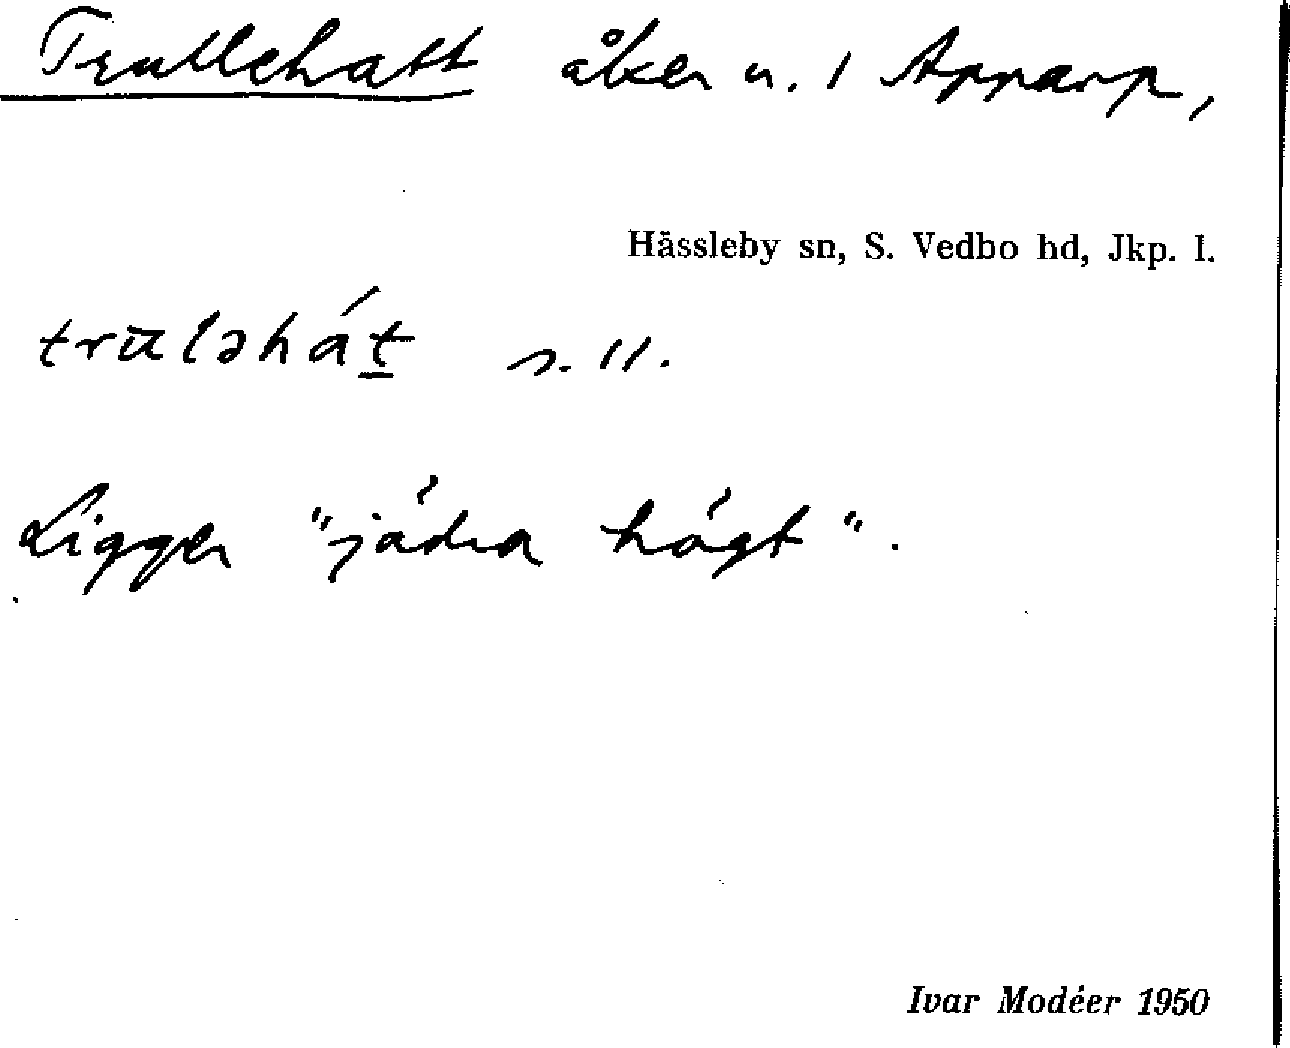 Trullehatt åker n. 1 Apparp,
Hässleby sn, S. Vedbo hd, Jkp. l.
truləhát s. 11.
Ligger "jädra högt".
Ivar Modéer 1950